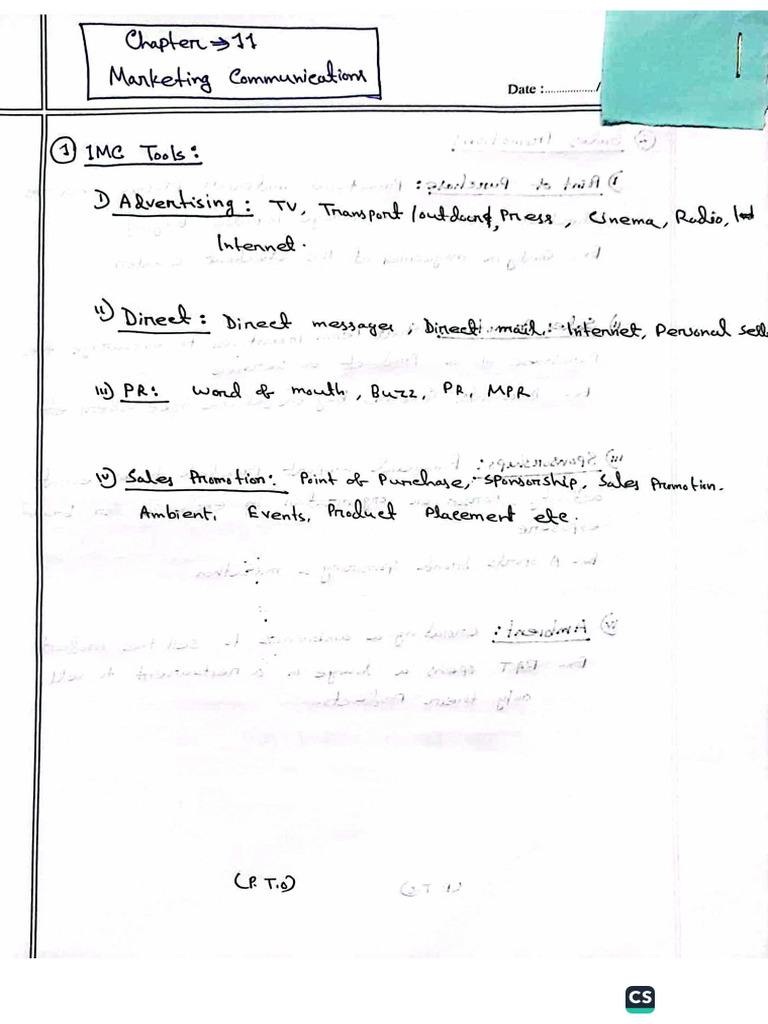 Chapter → 11
Marketing Communications
Date :................/
① IMC Tools:
i) Advertising: TV, Transport/outdoors, Press, Cinema, Radio,
Internet.
ii) Direct: Direct messages, Direct mail: Internet, Personal sell
iii) PR: Word of mouth, Buzz, PR, MPR
iv) Sales Promotion: Point of Purchase, Sponsorship, Sales Promotion.
Ambient, Events, Product Placement etc.
(P.T.O)
CS